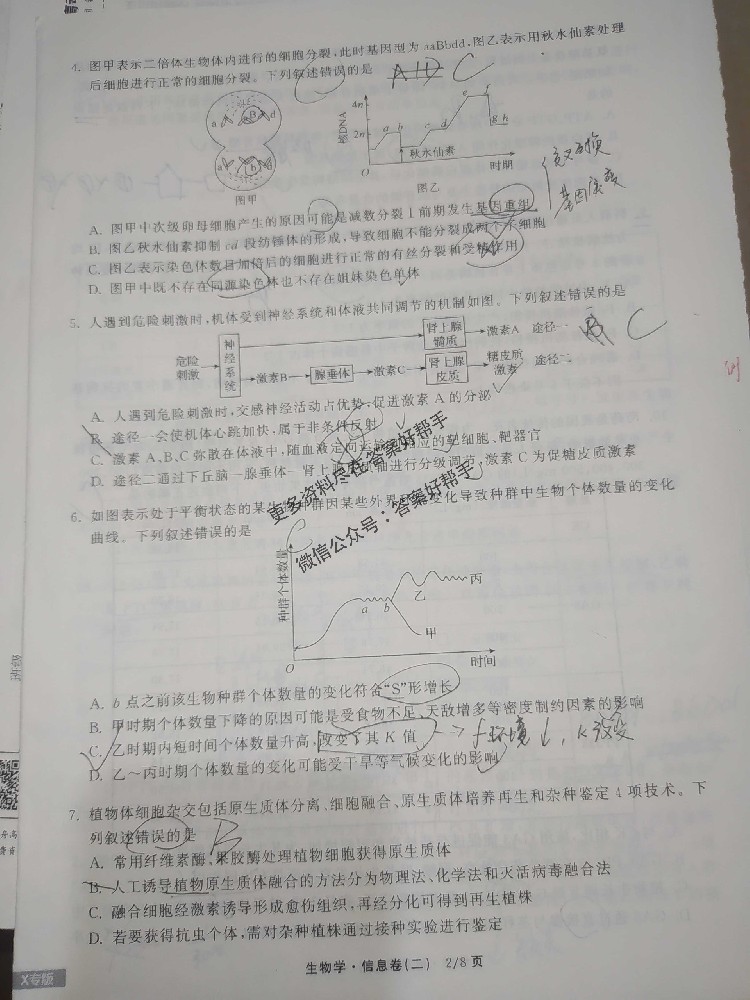 4. 图甲表示二倍体生物体内进行的细胞分裂,此时基因型为 aaBbdd,图乙表示用秋水仙素处理
后细胞进行正常的细胞分裂。下列叙述错误的是 C
a B d
a b d
图甲
核DNA
4n
2n
O
a b c d e f g h
秋水仙素
时期
图乙
交叉互换
基因突变
A. 图甲中次级卵母细胞产生的原因可能是减数分裂Ⅰ前期发生基因重组
B. 图乙秋水仙素抑制 cd 段纺锤体的形成,导致细胞不能分裂成两个子细胞
C. 图乙表示染色体数目加倍后的细胞进行正常的有丝分裂和受精作用
D. 图甲中既不存在同源染色体也不存在姐妹染色单体
5. 人遇到危险刺激时,机体受到神经系统和体液共同调节的机制如图。下列叙述错误的是
B C
危险刺激
神经系统
肾上腺髓质
激素A 途径一
激素B
腺垂体
激素C
肾上腺皮质
糖皮质激素
途径二
A. 人遇到危险刺激时,交感神经活动占优势,促进激素 A 的分泌
B. 途径一会使机体心跳加快,属于非条件反射
C. 激素 A、B、C 弥散在体液中,随血液定向运输到相应的靶细胞、靶器官
D. 途径二通过下丘脑—腺垂体—肾上腺皮质轴进行分级调节,激素 C 为促糖皮质激素
更多资料尽在答案好帮手
微信公众号:答案好帮手
6. 如图表示处于平衡状态的某生物种群因某些外界环境变化导致种群中生物个体数量的变化
曲线。下列叙述错误的是
C
种群个体数量
a b
甲
乙
丙
O
时间
A. b 点之前该生物种群个体数量的变化符合“S”形增长
B. 甲时期个体数量下降的原因可能是受食物不足、天敌增多等密度制约因素的影响
C. 乙时期内短时间个体数量升高,改变了其 K 值
D. 乙~丙时期个体数量的变化可能受干旱等气候变化的影响
7. 植物体细胞杂交包括原生质体分离、细胞融合、原生质体培养再生和杂种鉴定 4 项技术。下
列叙述错误的是 B
A. 常用纤维素酶、果胶酶处理植物细胞获得原生质体
B. 人工诱导植物原生质体融合的方法分为物理法、化学法和灭活病毒融合法
C. 融合细胞经激素诱导形成愈伤组织,再经分化可得到再生植株
D. 若要获得抗虫个体,需对杂种植株通过接种实验进行鉴定
生物学·信息卷(二) 2/8 页
X专版